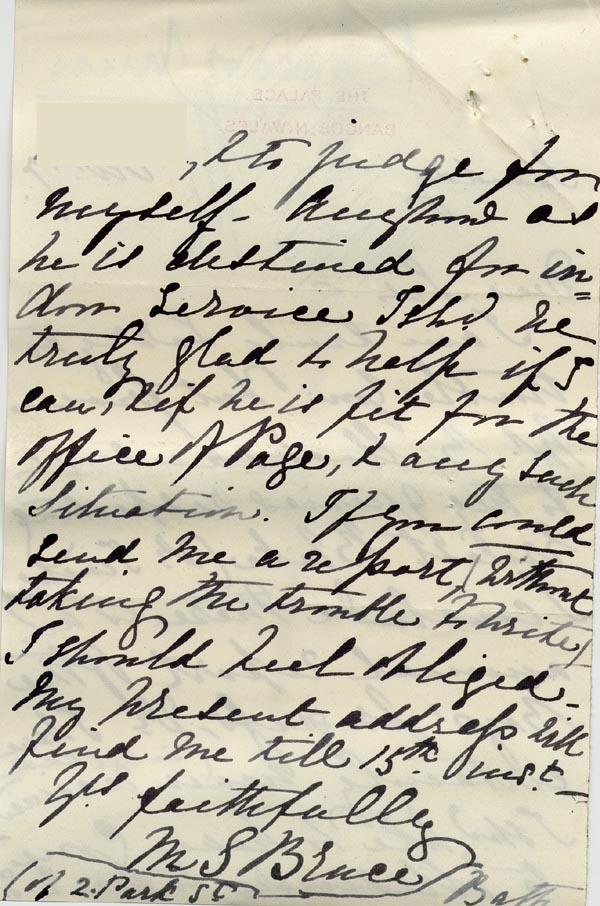 THE PALACE,
BANGOR, N. WALES.
, & to judge for
myself - Anyhow as
he is destined for in=
door service I shd. be
truly glad to help if I
can, & if he is fit for the
office of Page, & any such
situation. If you could
send me a report, (without
taking the trouble to write)
I should feel obliged.
My present address will
find me till 15th. inst. -
Yrs faithfully
M S Bruce
(of 2. Park St Bath